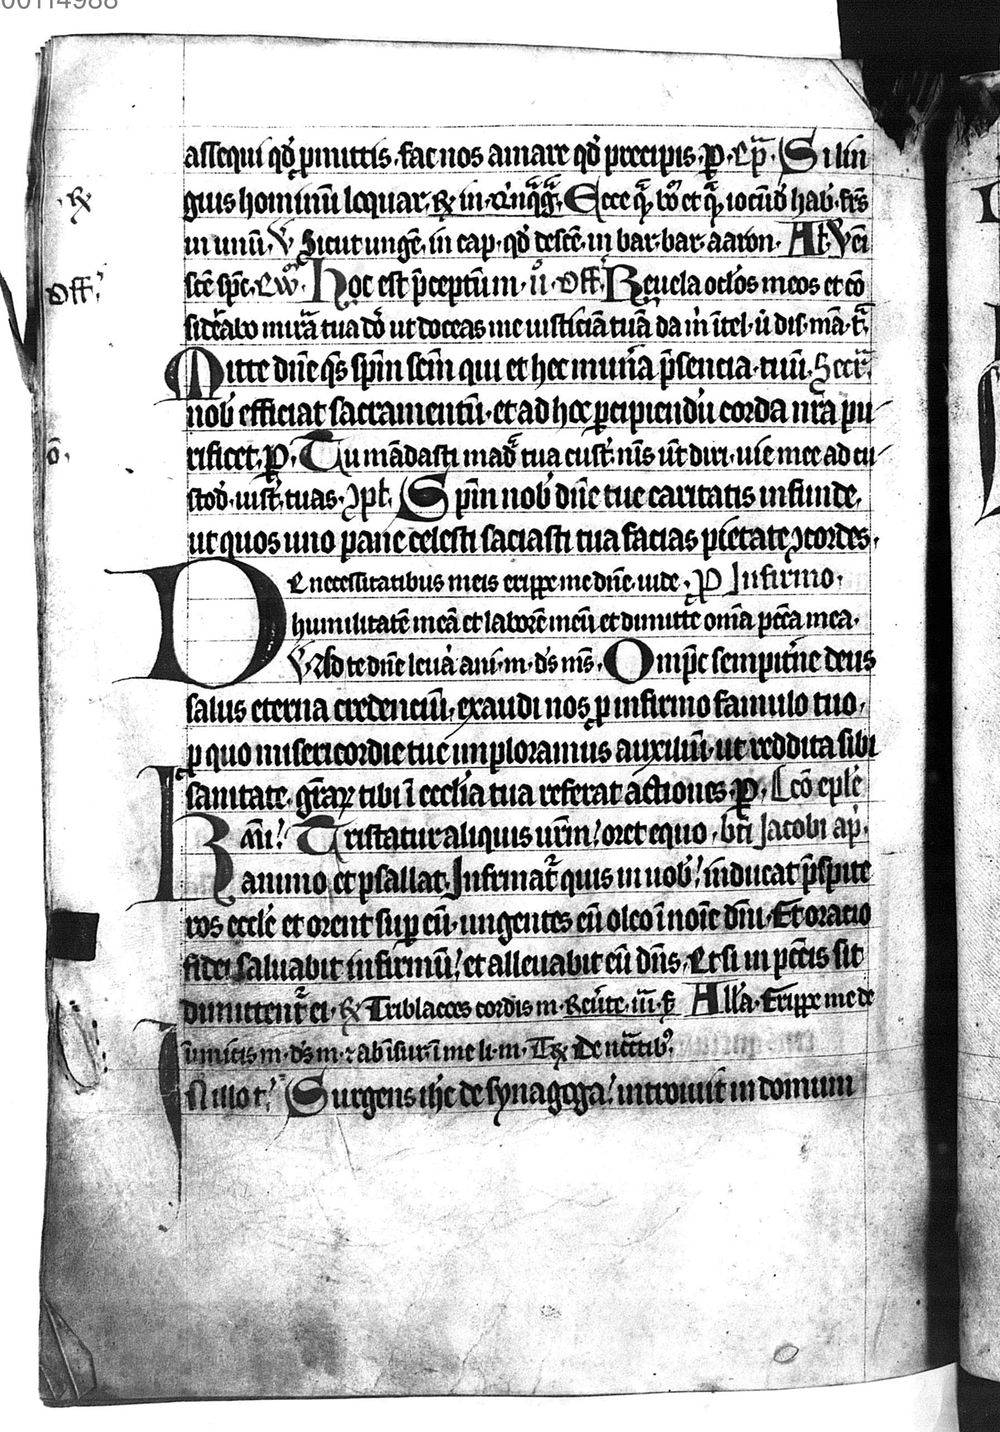 00114988
assequi qd̕ p̱mittis. fac nos amare qd̕ precipis. ꝑ. Ep̄. Si lin
℞ guis hominū loquar. ℞ in Ecce q̄ bo et q̄ iocūd̕ hab. frs̄
in unū. ℣ Sicut ungē. in cap. qd̕ descē. in bar. bar. aaron. Al̕ Veni
Off. scē sp̄c. Ew̄. Hoc est p̄ceptūm. Off. Reuela oclōs meos et cō
sid̕abo mira tua dō ut doceas me iusticiā tuā da m̄
Mitte dn̄e qs̄ spm̄ scm̄ qui et hec mun̄a p̄sencia. tuū. Secr̄.
nob̕ efficiat sacramentū. et ad hoc p̱cipiendū corda nr̄a pu
rificet. ꝑ. Tu mādasti mād̕ tua cust̕. nis ut̄ diri. uie mee ad cu
stod̕. iust̕. tuas. ꝯpl. Spm̄ nob̕ dn̄e tue caritatis infunde.
ut quos uno pane celesti saciasti tua facias pietate ꝯcordes.
De necessitatibus meis erippe me dn̄e. uide. P Infirmo.
humilitatē meā et laborē meū et dimitte om̄a pccā mea.
℣. Ad te dn̄e leua. ani. m. ds̄ ms̄. Omp̄c sempit̄ne deus
salus eterna credenciū. exaudi nos ꝓ infirmo famulo tuo.
ꝓ quo misericordie tue imploramus auxiliū. ut reddita sibi
sanitate. gr̄aꝝ tibi ī ecclīa tua referat actiones. ꝑ. Lcō eple
Kāmi. Tristatur aliquis urm̄. oret equo. bt̄i Jacobi ap̕.
animo et psallat. Infirmat̄ quis in uob̕. inducat p̄spite
ros eccle et orent sup̱ eū. ungentes eū oleo ī noīe dn̄i. Et oracio
fidei saluabit infirmū. et alleuabit eū dn̄s. Et si in pccīs sit
dimittent̄ ei. ℞ Tribl̄acoēs cordis m. Alla. Erippe me de
inimicis m. ds̄ m. ⁊ ab īsur. ī me li. m. Tx̄ De
In illo t̕. Surgens ih̄c de synagoga. introiuit in domum